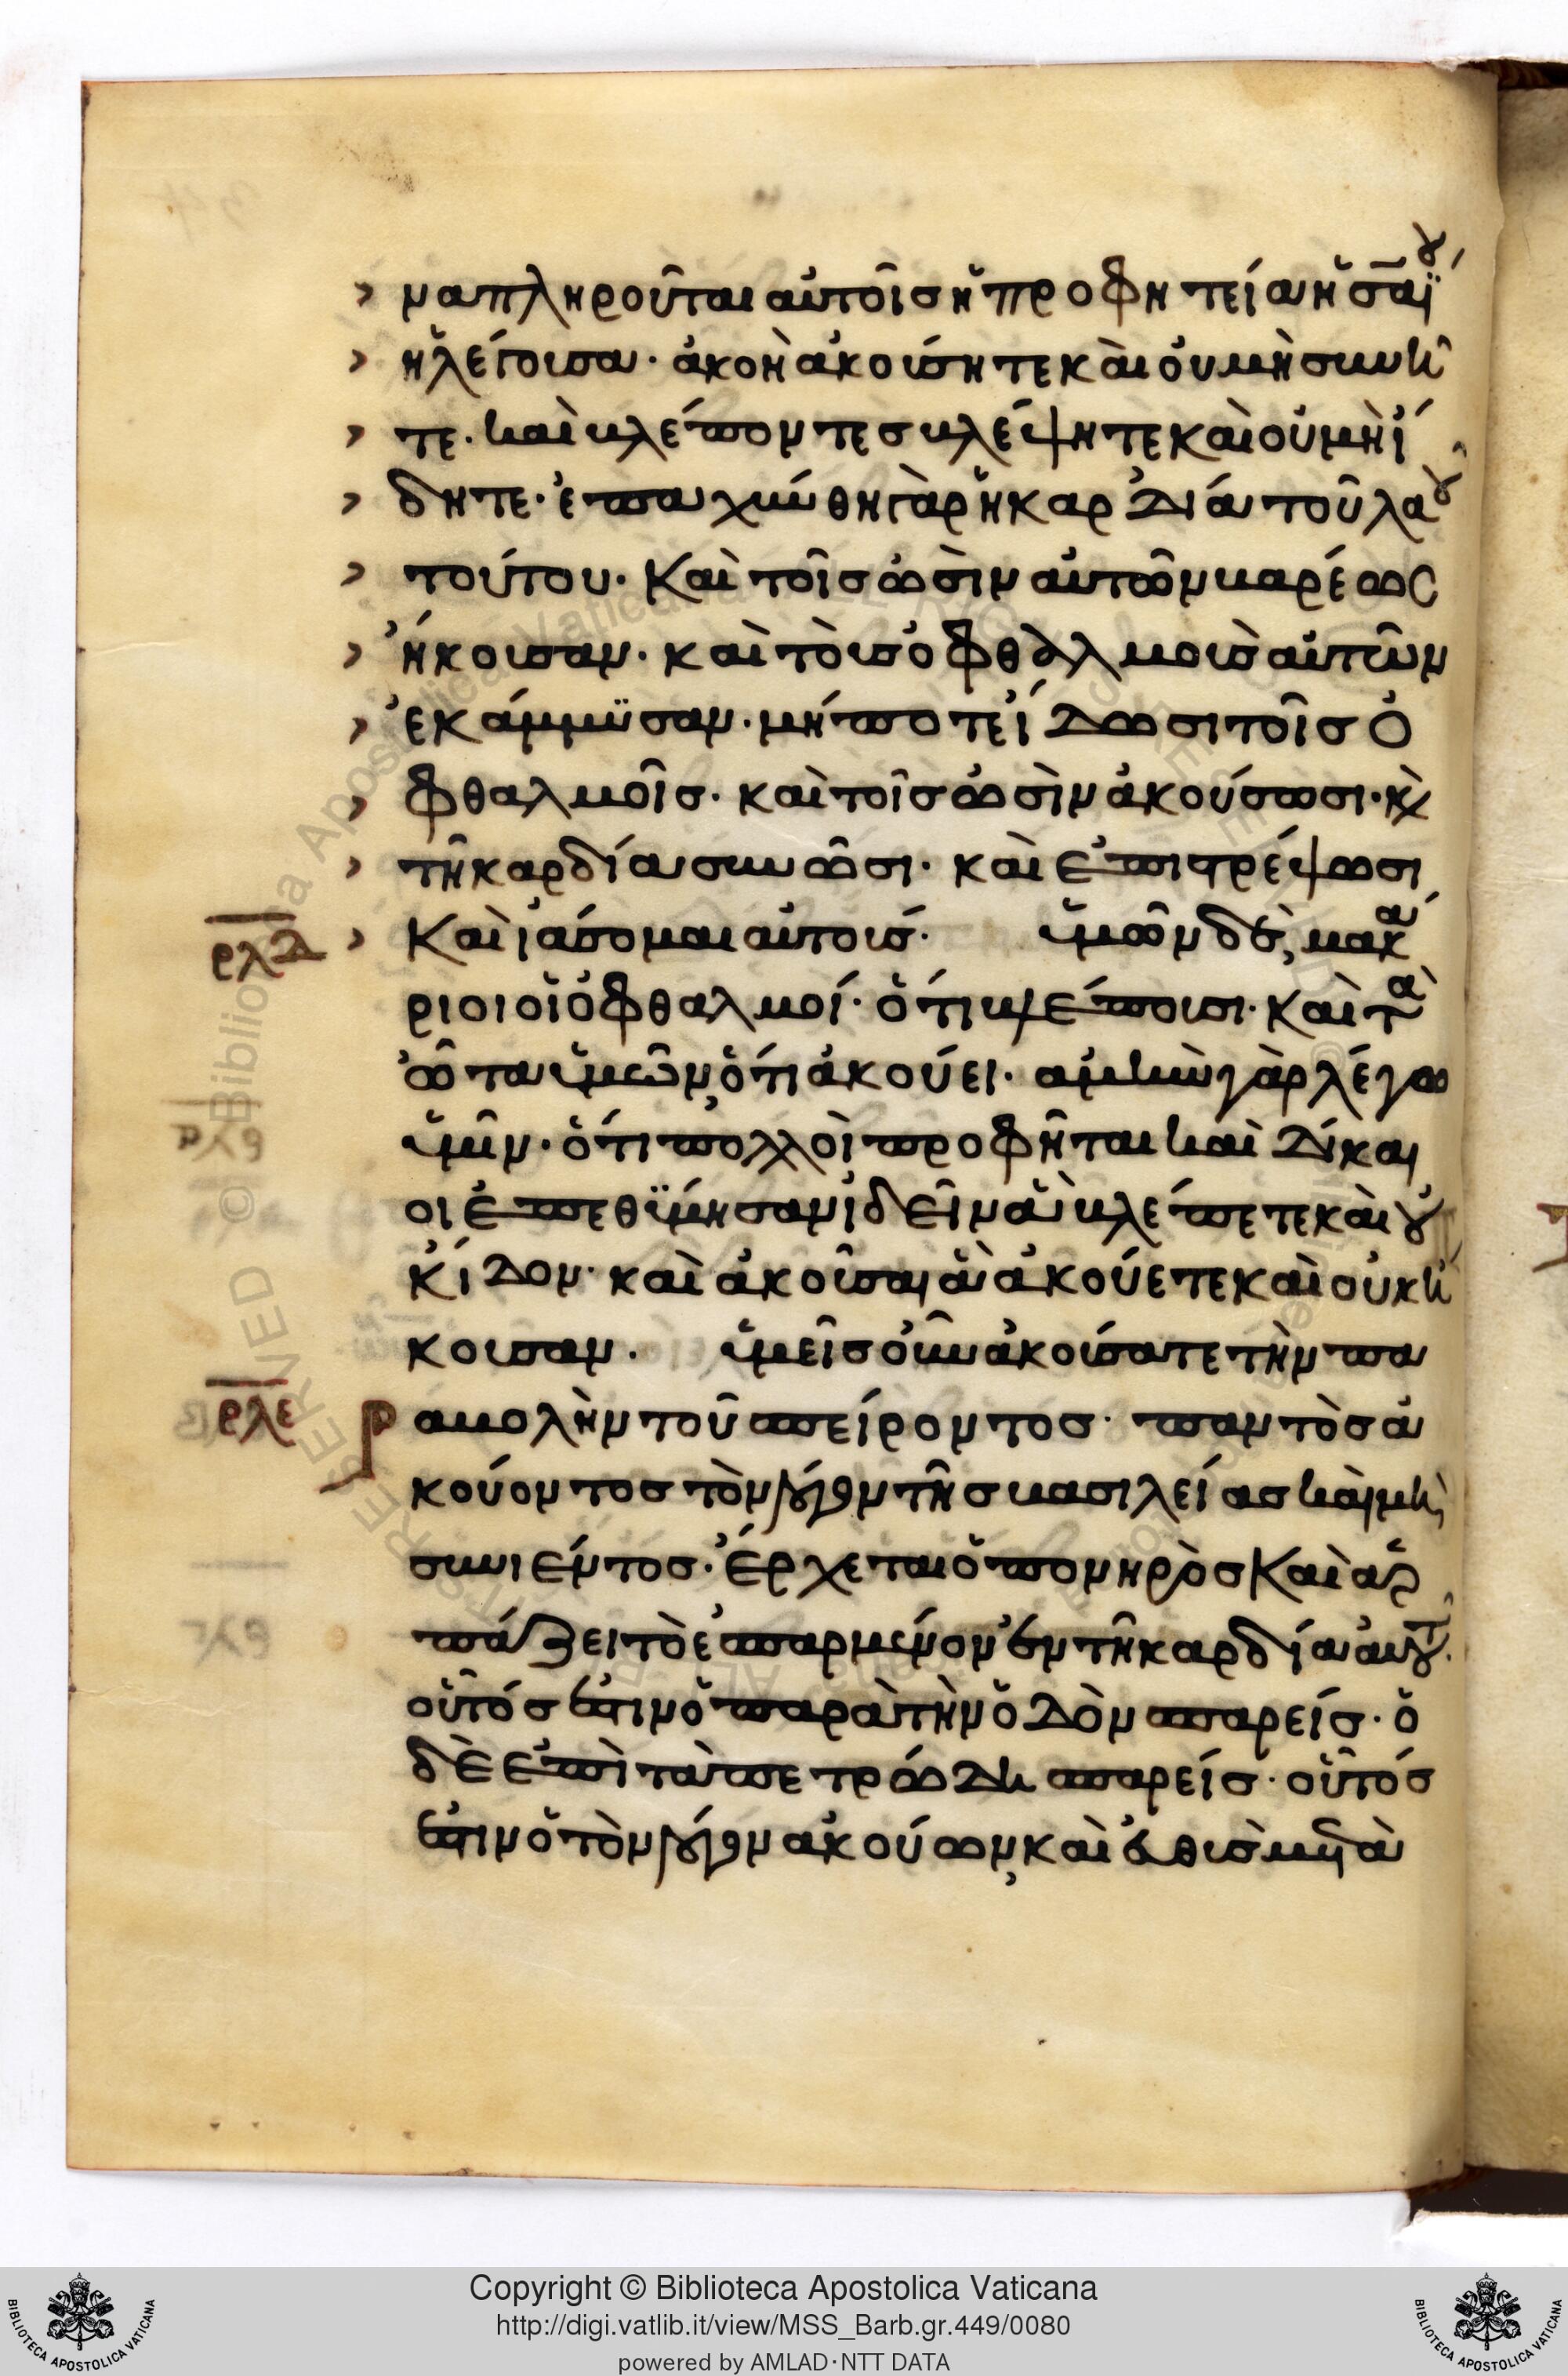 › ναπληροῦται αὐτοῖσ ἡ προφητεία ἡσαΐου
› ἡ λέγουσα· ἀκοῆ ἀκούσητε καὶ οὐ μὴ συνῆ
› τε· καὶ βλέποντεσ βλέψητε καὶ οὐ μὴ ἴ
› δητε· ἐπαχύνθη γὰρ ἡ καρδία τοῦ λαοῦ
› τούτου· καὶ τοῖσ ὠσὶν αὐτῶν βαρέωσ
› ἤκουσαν· καὶ τοὺσ ὀφθαλμοὺσ αὐτῶν
› ἐκάμμϋσαν· μήποτε ἴδωσι τοῖσ ὀ
› φθαλμοῖσ· καὶ τοῖσ ὠσὶν ἀκούσωσι· κὲ
› τῆ καρδία συνῶσι· καὶ ἐπιστρέψωσι
ρλδ › καὶ ἰάσομαι αὐτούσ· ὑμῶν δὲ, μακά
ριοι οἱ ὀφθαλμοί· ὅτι βλέπουσι· καὶ τὰ
ὦτα ὑμῶν, ὅτι ἀκούει· ἀμὴν γὰρ λέγω
ὑμῖν· ὅτι πολλοὶ προφῆται καὶ δίκαι
οι ἐπεθΰμησαν ἰδεῖν ἃ βλέπετε καὶ οὐ
κ ἴδον· καὶ ἀκοῦσαι ἃ ἀκούετε καὶ οὐκ ἤ
κουσαν· ὑμεῖσ οὖν ἀκούσατε τὴν πα
ρλε ραβολὴν τοῦ σπείροντοσ· παντὸσ ἀ
κούοντοσ τὸν λόγον τῆσ βασιλείασ καὶ μὴ
συνιέντοσ· ἔρχεται ὁ πονηρὸσ καὶ ἁρ
πάζει τὸ ἐσπαρμένον ἐν τῆ καρδία αὐτοῦ·
οὗτόσ ἐστιν ὁ παρὰ τὴν ὁδὸν σπαρείσ· ὁ
δὲ ἐπὶ τὰ πετρώδη σπαρείσ· οὗτόσ
ἐστιν ὁ τὸν λόγον ἀκούων, καὶ εὐθὺσ μετὰ
Copyright © Biblioteca Apostolica Vaticana
http://digi.vatlib.it/view/MSS_Barb.gr.449/0080
powered by AMLAD·NTT DATA